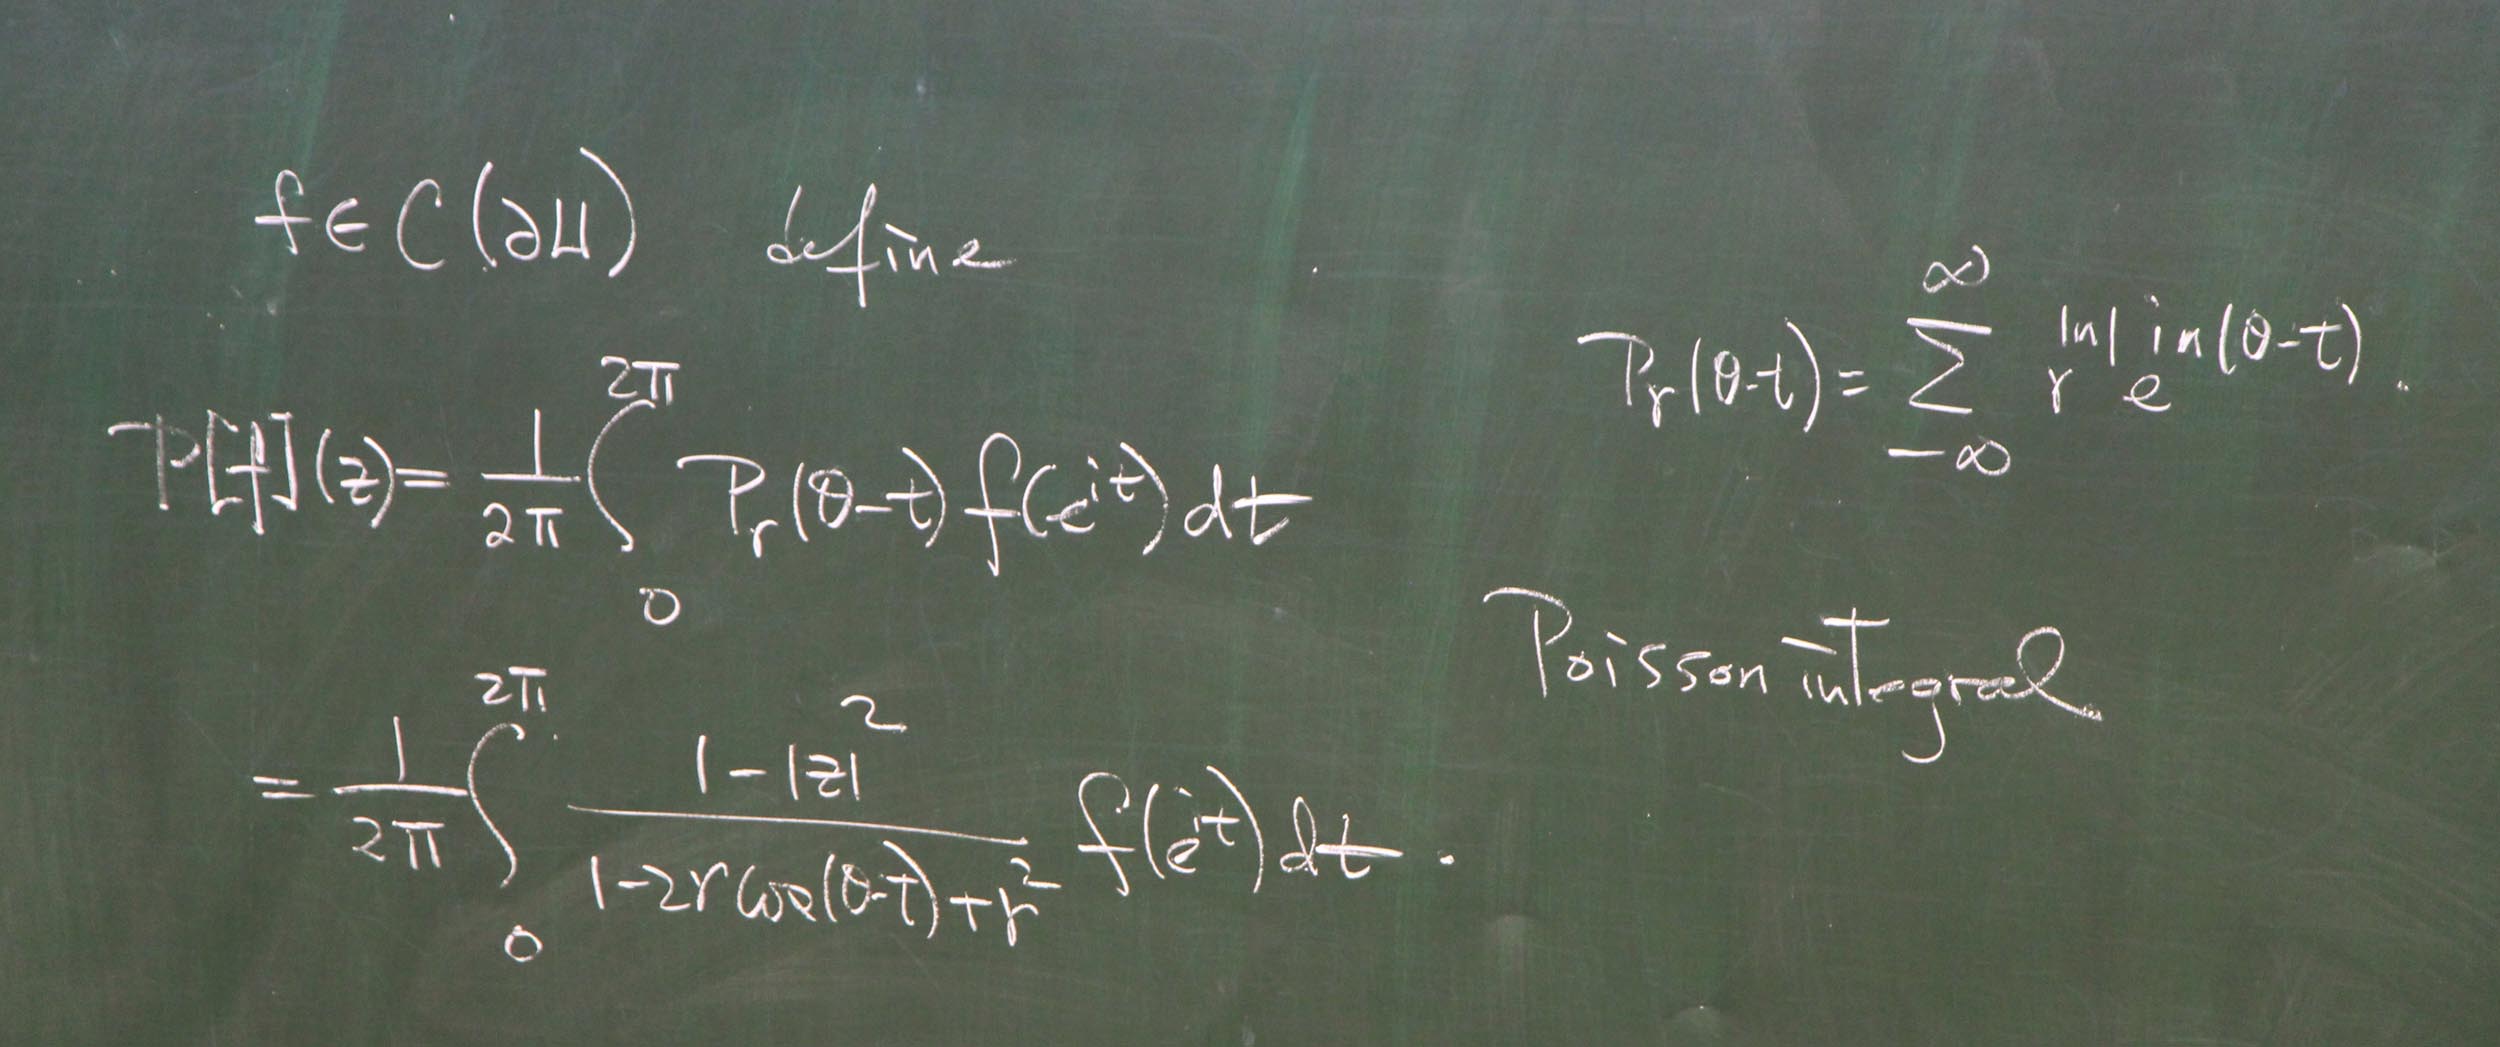 f ∈ C(∂U) define
P[f](z) = \frac{1}{2π} \int_0^{2π} P_r(θ-t) f(e^{it}) dt
= \frac{1}{2π} \int_0^{2π} \frac{1-|z|^2}{1-2r cos(θ-t)+r^2} f(e^{it}) dt.
P_r(θ-t) = \sum_{-∞}^{∞} r^{|n|} e^{in(θ-t)}.
Poisson integral